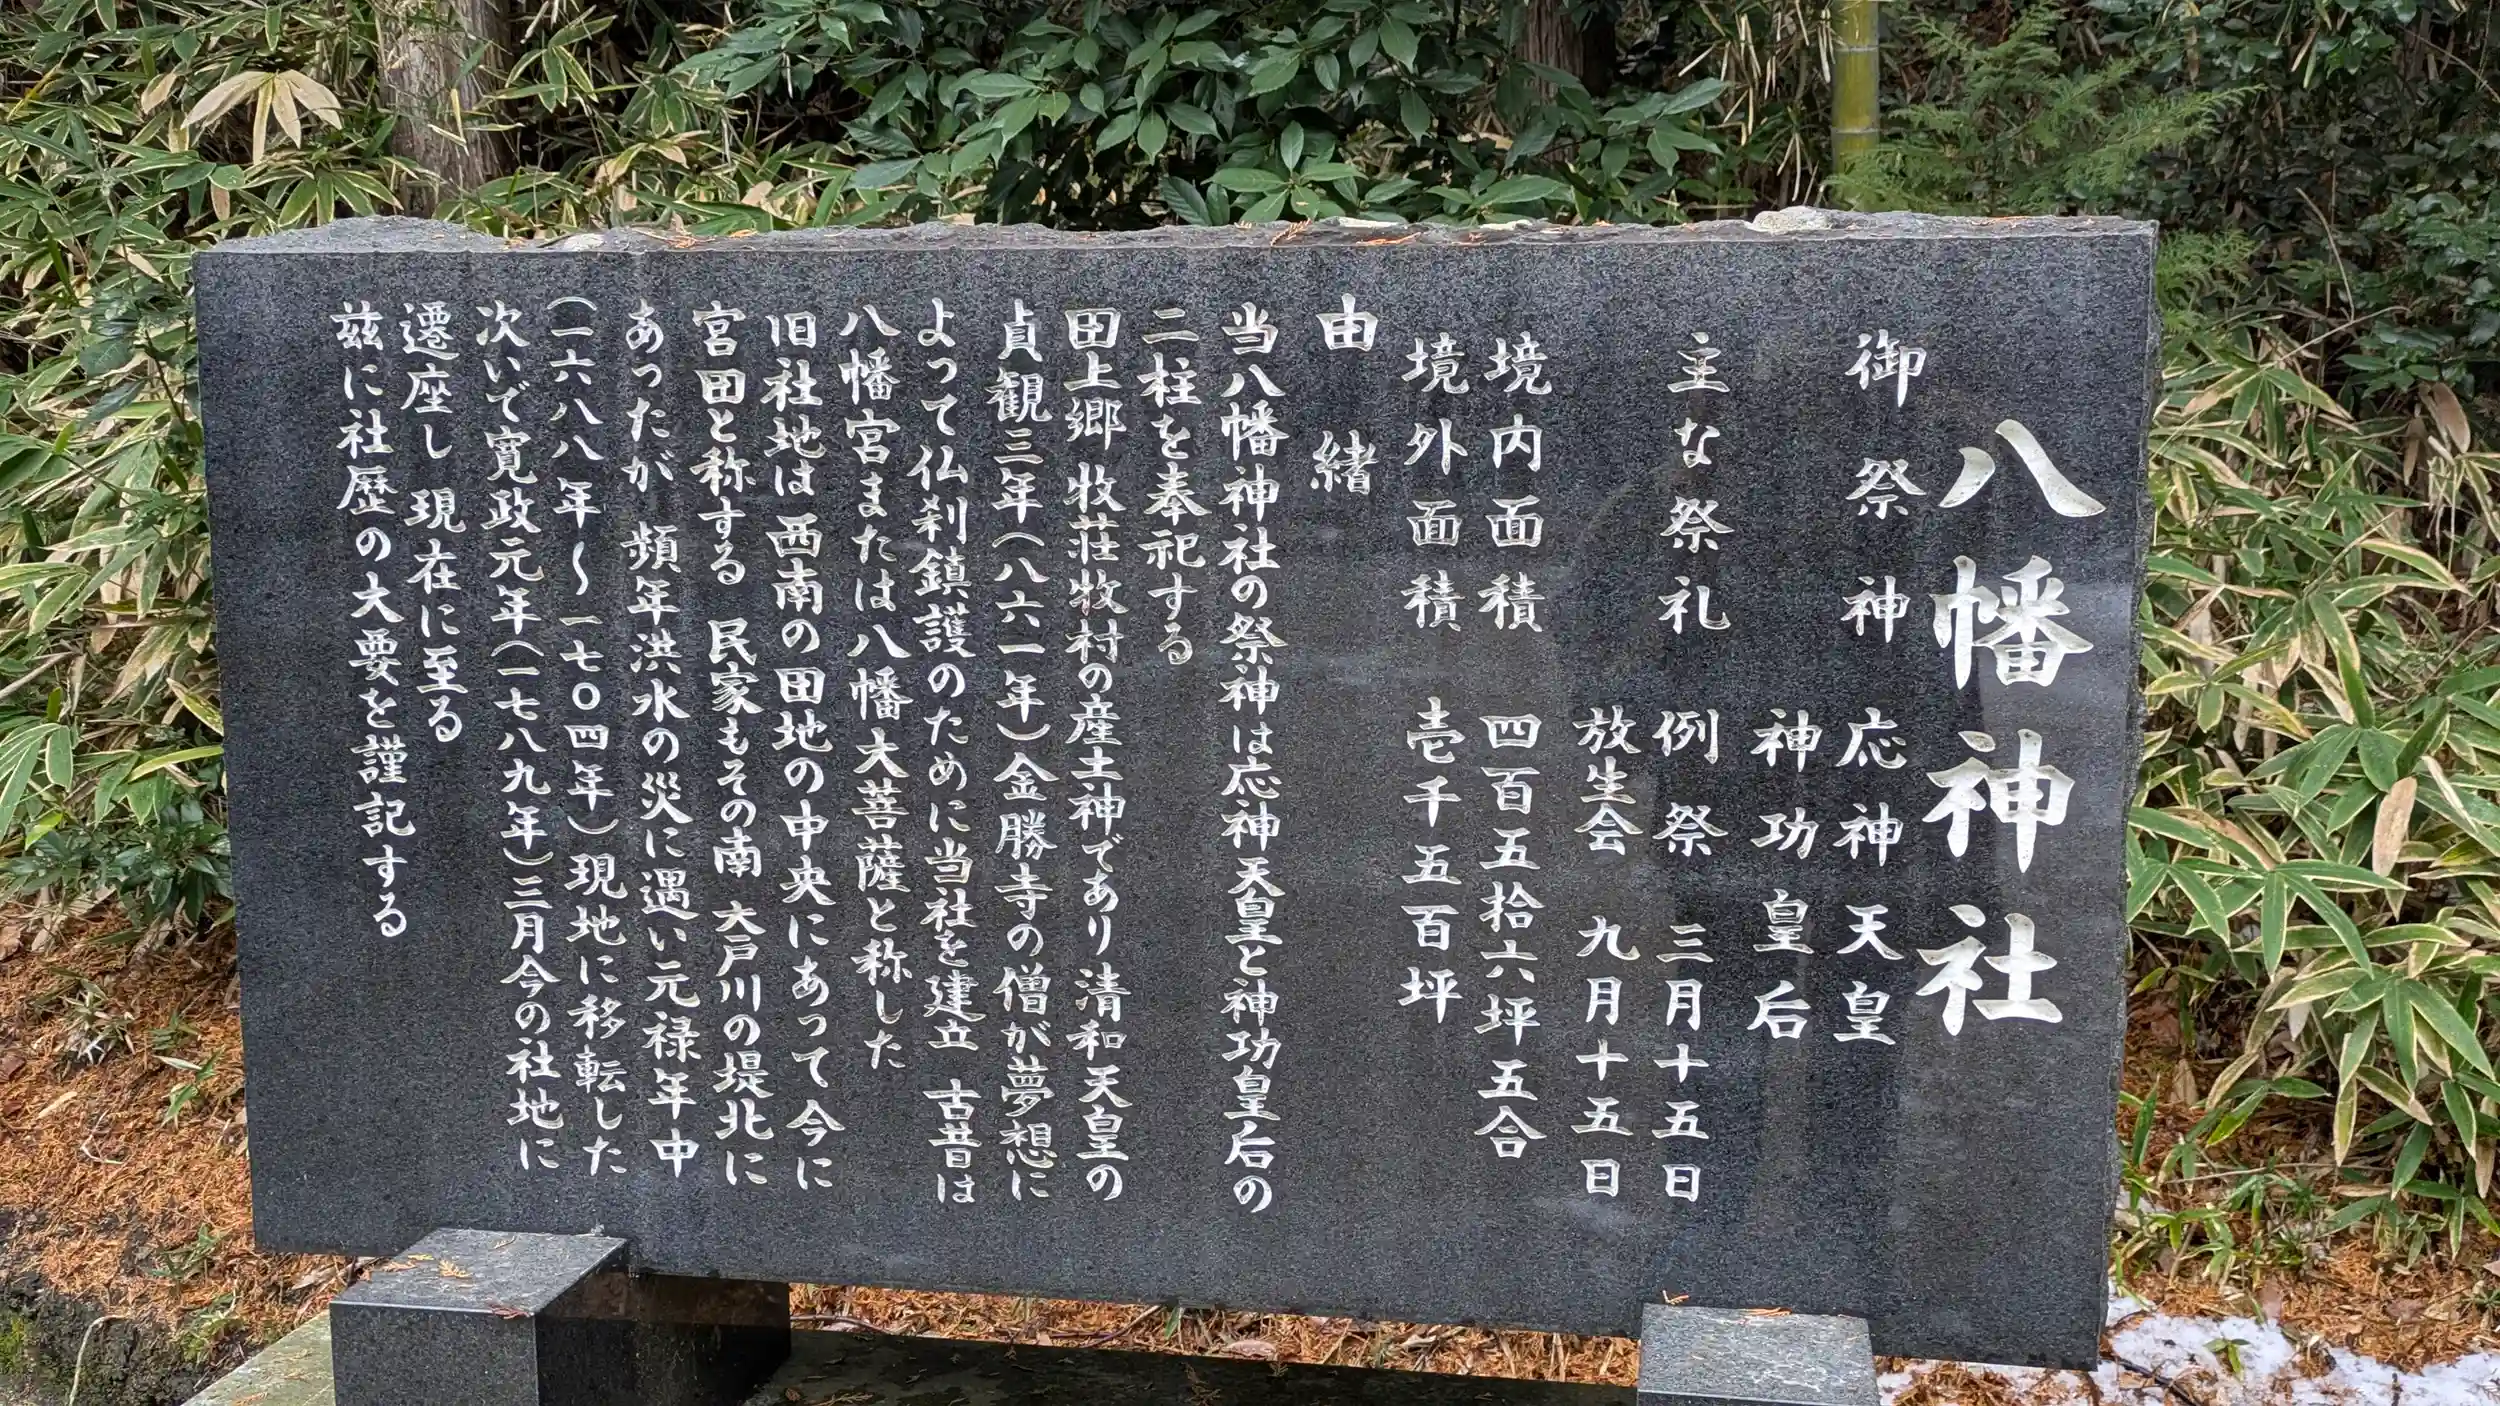 八幡神社
御祭神 応神天皇
神功皇后
主な祭礼 例祭 三月十五日
放生会 九月十五日
境内面積 四百五拾六坪五合
境外面積 壱千五百坪
由緒
当八幡神社の祭神は応神天皇と神功皇后の
二柱を奉祀する
田上郷 牧荘牧村の産土神であり清和天皇の
貞観三年(八六一年)金勝寺の僧が夢想に
よって仏刹鎮護のために当社を建立 古昔は
八幡宮または八幡大菩薩と称した
旧社地は 西南の田地の中央にあって今に
宮田と称する 民家もその南 大戸川の堤北に
あったが 頻年洪水の災に遇い元禄年中
(一六八八年〜一七〇四年)現地に移転した
次いで寛政元年(一七八九年)三月今の社地に
遷座し 現在に至る
茲に社歴の大要を謹記する